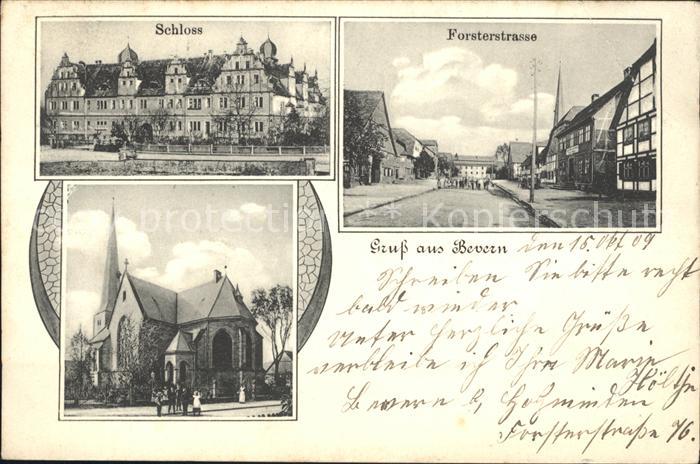 Schloss
Forsterstrasse
copy protection * Kopierschutz
Gruß aus Bevern
den 15. Okt 09
Schreiben Sie bitte recht
bald wieder
Unter herzliche Grüße
verbleibe ich Ihre Marie
Höltje
Bevern b, Holzminden
Forsterstraße 76.